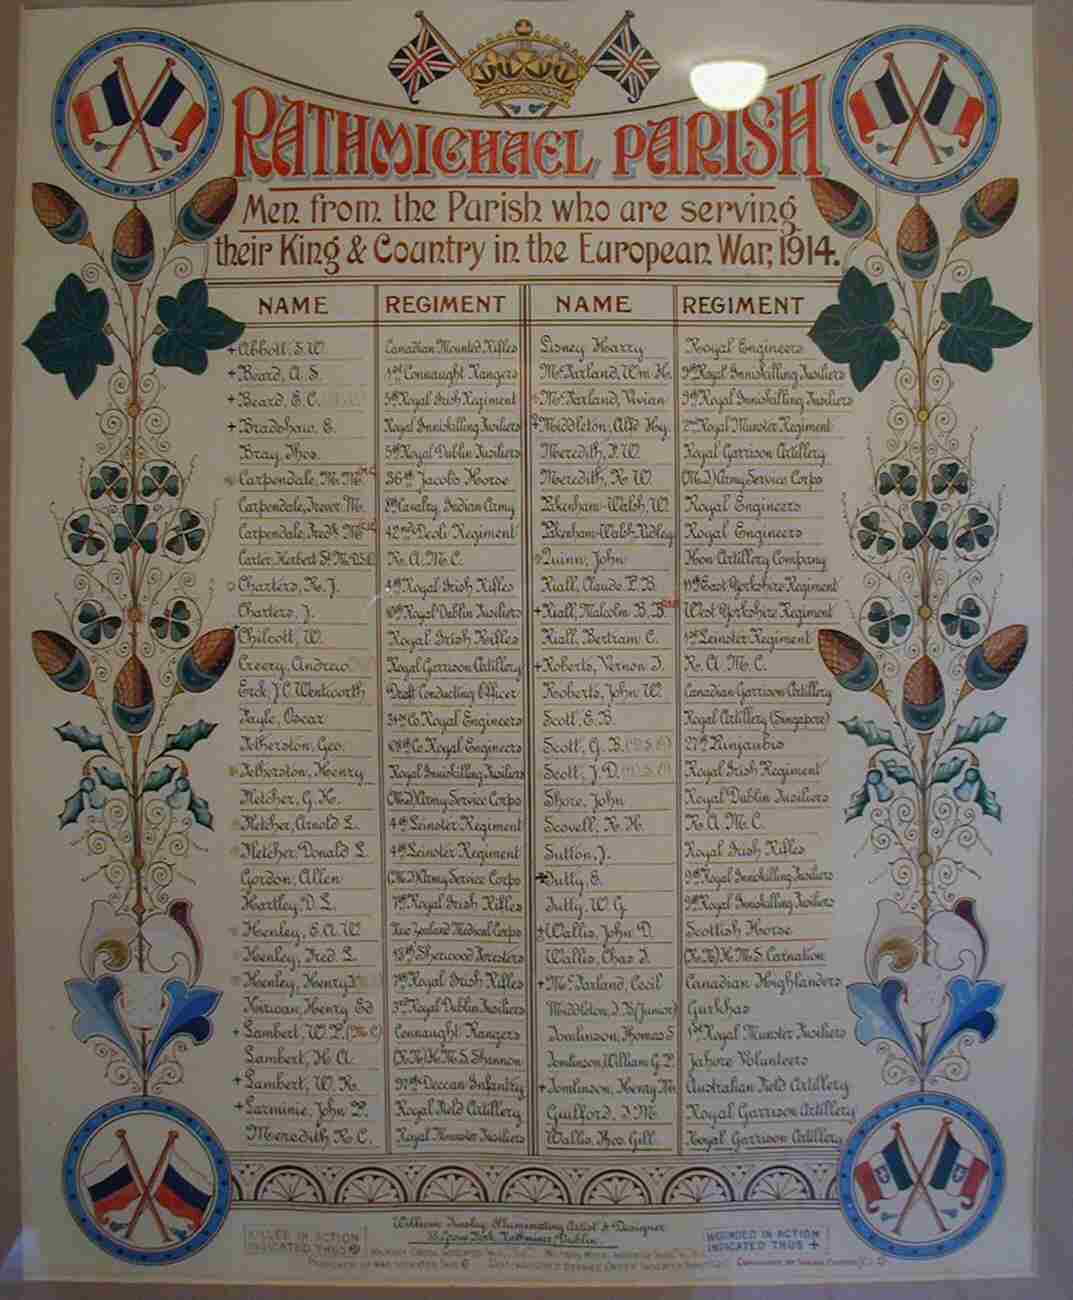 RATHMICHAEL PARISH
Men from the Parish who are serving
their King & Country in the European War, 1914.
NAME REGIMENT NAME REGIMENT
+ Abbott, S.W. Canadian Mounted Rifles Disney Harry Royal Engineers
+ Beard, A. S. 1st Connaught Rangers McFarland, Wm H. 9th Royal Inniskilling Fusiliers
+ Beard, E. C. 5th Royal Irish Regiment McFarland, Vivian 9th Royal Inniskilling Fusiliers
+ Bradshaw, E. Royal Inniskilling Fusiliers Middleton, Alfd Hy. 2nd Royal Munster Regiment
Bray, Thos. 5th Royal Dublin Fusiliers Meredith, F. W. Royal Garrison Artillery
Carpendale, M. M. 36th Jacob's Horse Meredith, R. W. (M.T) Army Service Corps
Carpendale, Trevor M. Cavalry, Indian Army Pkenham-Walsh, W. Royal Engineers
Carpendale, Fredk M. 42nd Deoli Regiment Pkenham-Walsh Ridley Royal Engineers
Carter, Herbert St. M. D.S.O. R. A. M. C. Quinn, John Hon Artillery Company
Charters, R. J. 4th Royal Irish Rifles Riall, Claude P. B. 11th East Yorkshire Regiment
Charters, J. Royal Dublin Fusiliers + Riall, Malcolm B. B. West Yorkshire Regiment
+ Chilcott, W. Royal Irish Rifles Riall, Bertram C. 1st Leinster Regiment
Creery, Andrew Royal Garrison Artillery + Roberts, Vernon J. R. A. M. C.
Erck, J. C. Wentworth Draft Conducting Officer Roberts, John W. Canadian Garrison Artillery
Fayle, Oscar 34th Co. Royal Engineers Scott, E. B. Royal Artillery (Singapore)
Fetherston, Geo. Co. Royal Engineers Scott, G. B. 27th Punjaubis
Fetherston, Henry Royal Inniskilling Fusiliers Scott, J. D. Royal Irish Regiment
Fletcher, G. H. (M.T) Army Service Corps Shore, John Royal Dublin Fusiliers
Fletcher, Arnold L. 4th Leinster Regiment Scovell, R. H. R. A. M. C.
Fletcher, Donald L. 4th Leinster Regiment Sutton, J. Royal Irish Rifles
Gordon, Allen (M.T) Army Service Corps + Tutty, E. 9th Royal Inniskilling Fusiliers
Hartley, D. L. 7th Royal Irish Rifles Tutty, W. G. 9th Royal Inniskilling Fusiliers
Henley, E. A. W. New Zealand Medical Corps + Wallis, John D. Scottish Horse
Henley, Fred L. Sherwood Foresters Wallis, Chas J. (R.N) H. M. S. Carnation
Henley, Henry 7th Royal Irish Rifles + McFarland, Cecil Canadian Highlanders
Kirwan, Henry Ed Royal Dublin Fusiliers Middleton, J. B (Junior) Gurkhas
+ Lambert, W. P. (M.C) Connaught Rangers Tomlinson, Thomas S 1st Royal Munster Fusiliers
Lambert, H. A. (R.N) H. M. S. Shannon Tomlinson, William G. P. Jahore Volunteers
+ Lambert, W. R. 97th Deccan Infantry + Tomlinson, Henry M. Australian Field Artillery
+ Larminie, John P. Royal Field Artillery Guilford, J. M. Royal Garrison Artillery
Meredith R. C. Royal Munster Fusiliers Wallis, Thos. Gill. Royal Garrison Artillery
William Tensley Illuminating Artist & Designer
Grove Park, Rathmines, Dublin.
KILLED IN ACTION INDICATED THUS WOUNDED IN ACTION INDICATED THUS +